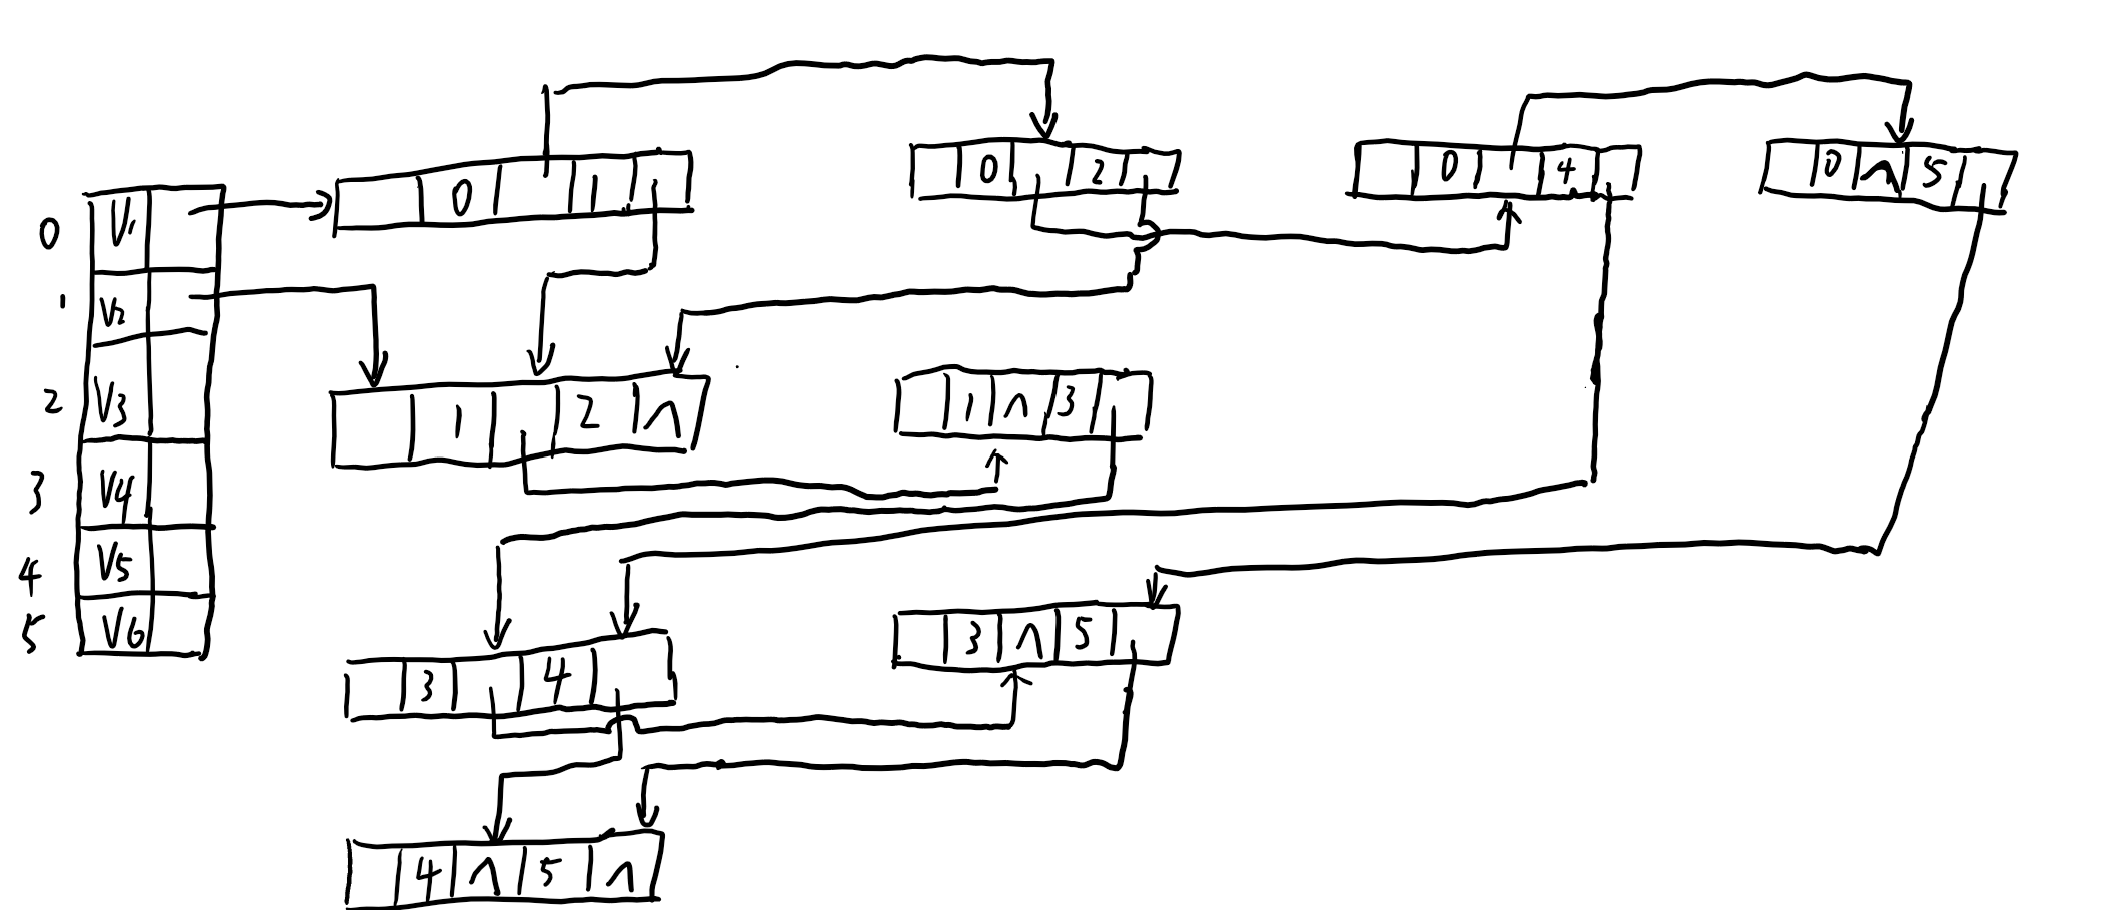 0 V1
1 V2
2 V3
3 V4
4 V5
5 V6
0 1
0 2
0 4
0 ∧ 5
1 2 ∧
1 ∧ 3
3 4
3 ∧ 5
4 ∧ 5 ∧